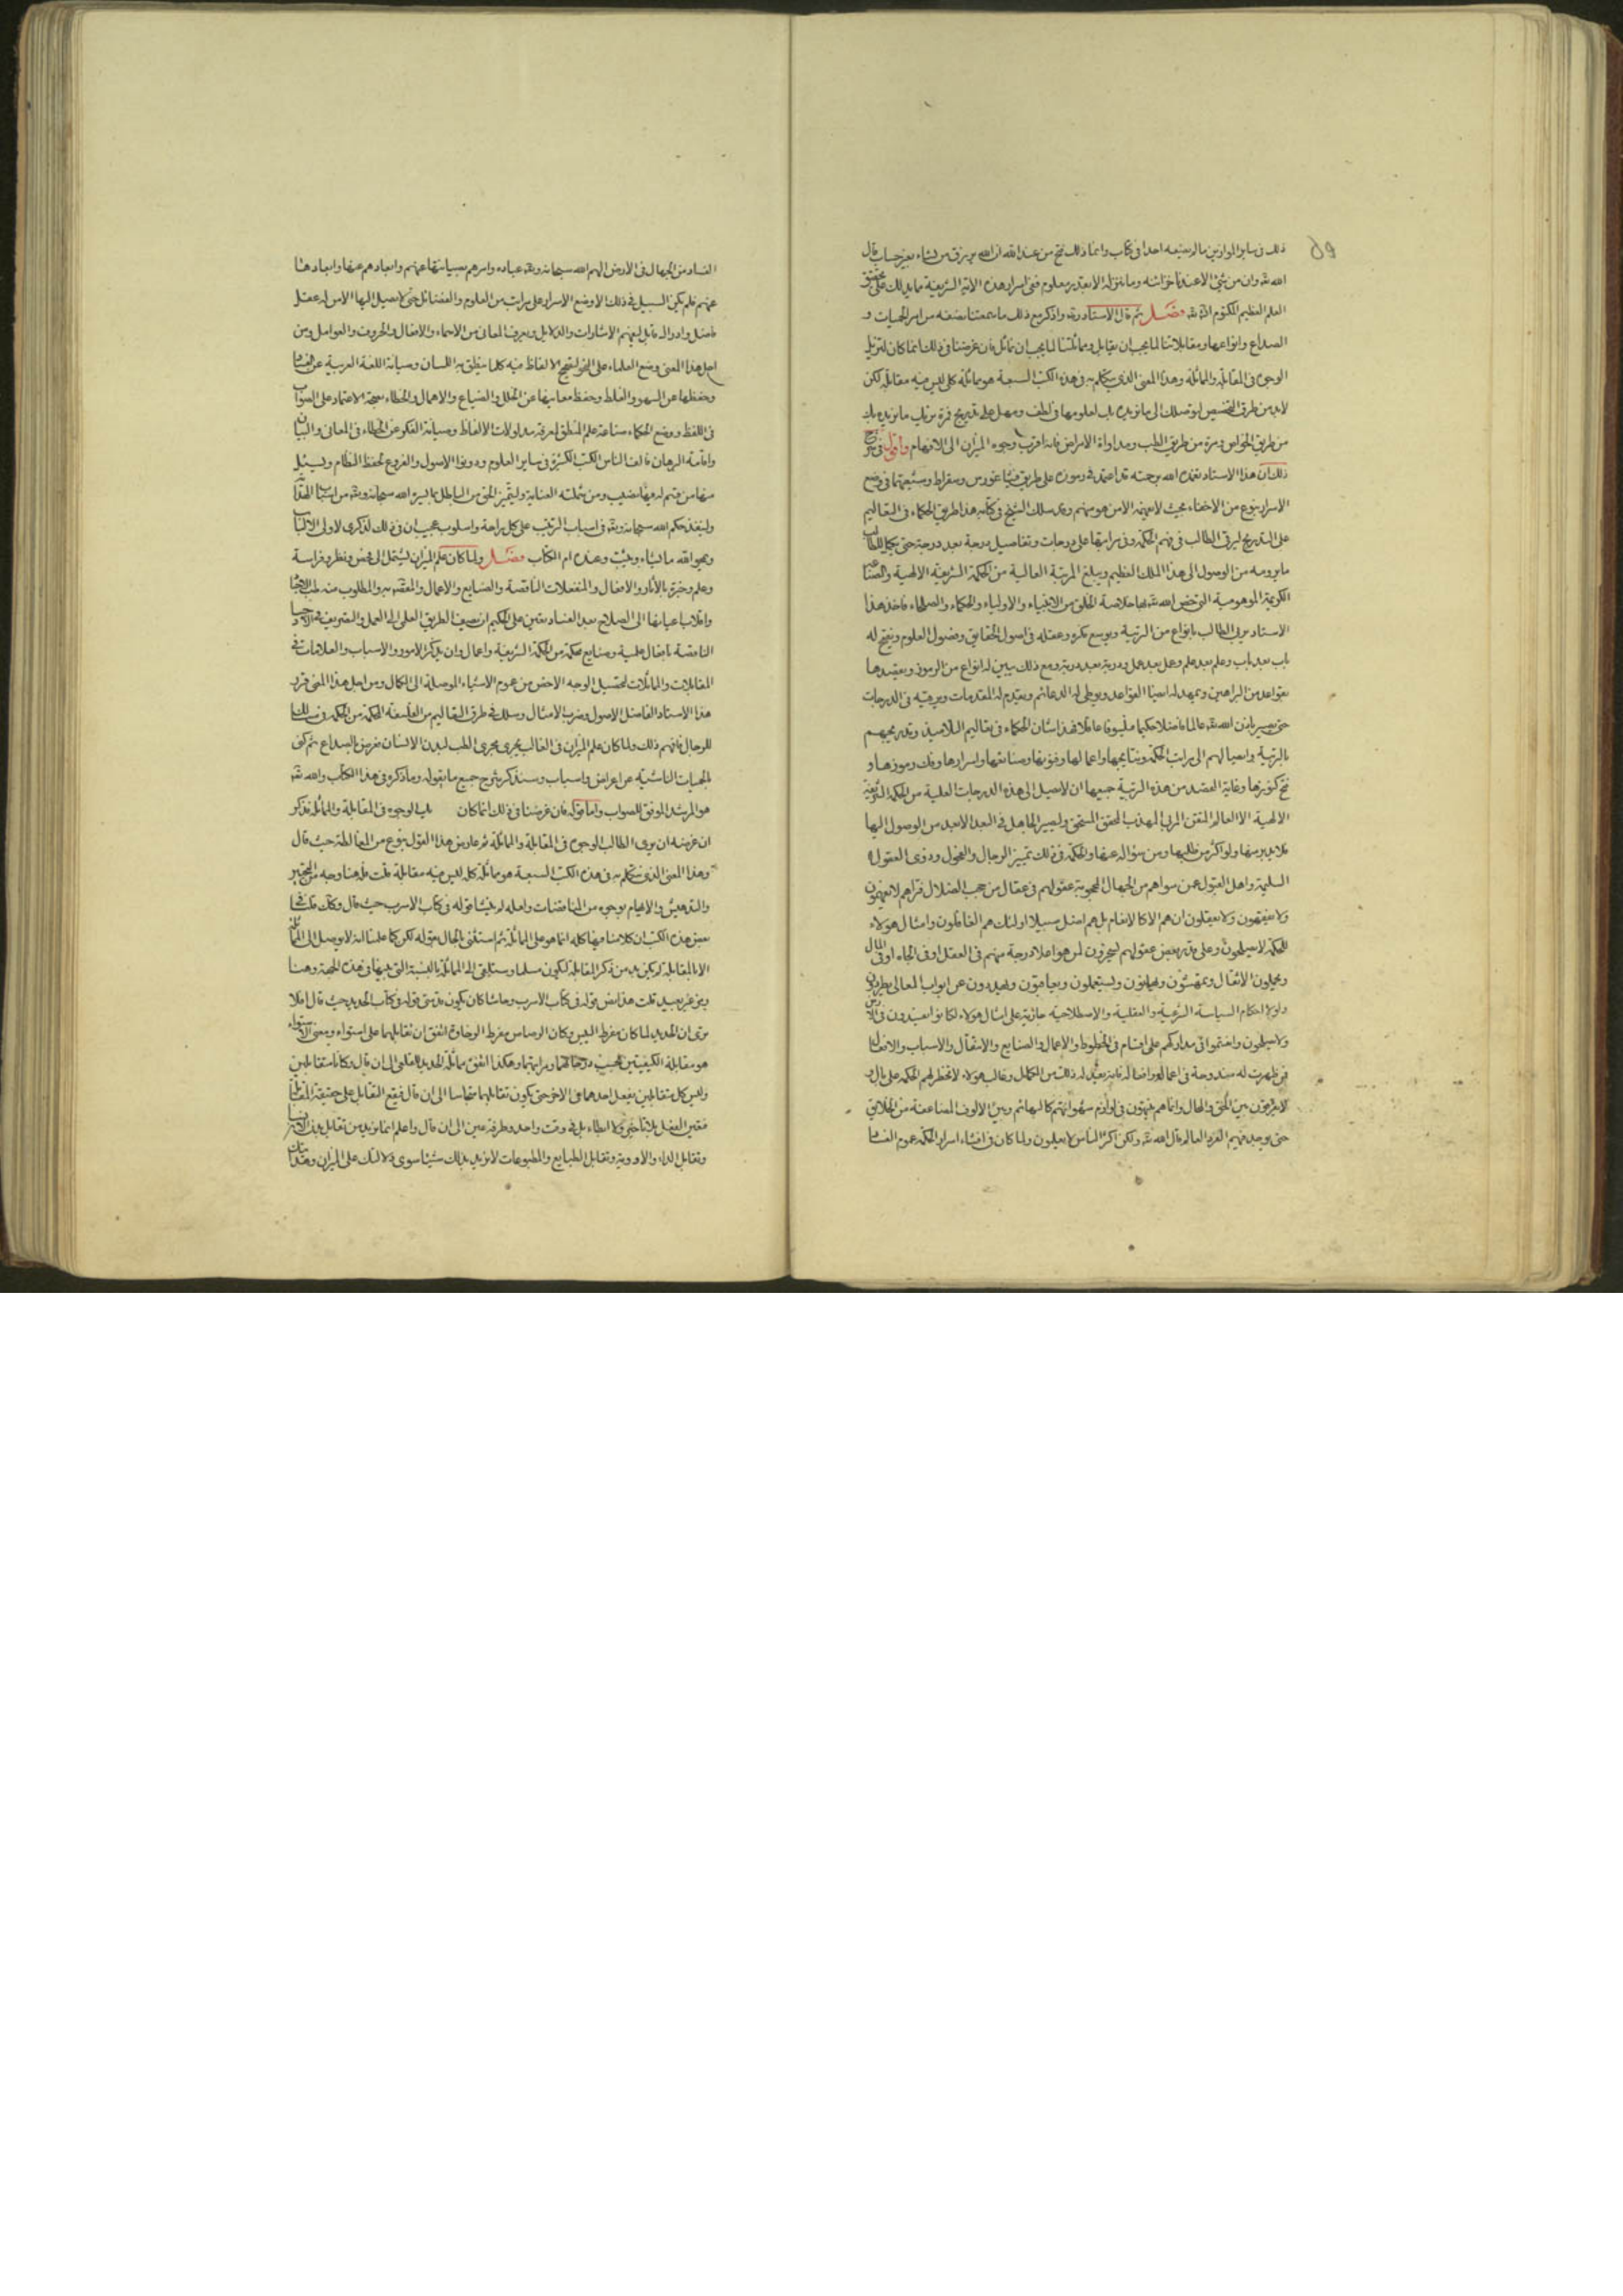 ذلك في ساير الموازين ما لم يضعه احد في كتاب وانما ذلك فتح من عند الله ان الله يرزق من يشاء بغير حساب قال
الله تع وان من شئ الا عندنا خزائنه وما ننزله الا بقدر معلوم ففي اسرار هذه الاية الشريفة ما يدلك على تحقيق
العلم العظيم المكتوم فصل ثم قال الاستاد واذكر مع ذلك ما سمعتنا نصفه من امر الحميات و
الصداع وانواعها ومقابلاتنا لما يجب ان يقابل ومماثلتنا لما يجب ان نماثل فان غرضنا في ذلك انما كان لنريك
الوجوه في المقابلة والمماثلة وهذا المعنى الذي نتكلم به في هذه الكتب السبعة هو مماثلة كله ليس فيه مقابلة لكن
لابد من طرق التخصيص لنوصلك الى ما نريده بك لعلومها في لطف وسهل على تدريج فمرة نريك ما نريده بك
من طريق الخواص ومرة من طريق الطب ومداواة الامراض فانه اقرب وجوه الميزان الى الافهام واقول في شرح
ذلك ان هذا الاستاد تغمده الله برحمته قد اعتمد في رموزه على طريق فيثاغورس وسقراط وشيعتهما في وضع
الاسرار بنوع من الاخفاء بحيث لا يفهمه الا من هو منهم وقد سلك الشيخ في كتابه هذا طريق الحكماء في التعاليم
على التدريج ليرقى الطالب في فهم الحكمة وفي مراتبها على درجات وتفاصيل درجة بعد درجة حتى يكمل للطالب
ما يرومه من الوصول الى هذا الملك العظيم ويبلغ المرتبة العالية من الحكمة الشريفة الالهية والصناعة
الكريمة الموهوبية التي خص الله تع بها خلاصة الخلق من الانبياء والاولياء والحكماء والصلحاء فاخذ هذا
الاستاد يربي الطالب بانواع من التربية ويوسع فكره وعقله في اصول الحقايق وفصول العلوم ويفتح له
باب بعد باب وعلم بعد علم وعمل بعد عمل ودربة بعد دربة ومع ذلك يبين له انواع من الرموز ويعضدها
بقواعد من البراهين ويمهد له ايضا القواعد ويوطي له الدعائم ويقدم له المقدمات ويرقيه في الدرجات
حتى يصير باذن الله تع عالما فاضلا حكيما فيلسوفا عاقلا فهذا شان الحكماء في تعاليم التلاميذ وتدريجهم
بالتربية وايصالهم الى مراتب الحكمة ونتايجها واعمالها وفنونها وصنائعها واسرارها وفك رموزها و
فتح كنوزها وغاية القصد من هذه التربية جميعها ان لا يصل الى هذه الدرجات العلية من الحكمة الشريفة
الالهية الا العالم المتقن المربى المهذب المحقق المستحق ويصير الجاهل في البعد الابعد من الوصول اليها
فلا يدبر منها ولو اكثر من طلبها ومن سؤاله عنها والحكمة في ذلك تمييز الرجال والفحول وذوي العقول
السليمة واهل القبول عمن سواهم من الجهال المحجوبة عقولهم في عقال من حجب الضلال فتراهم لا يفهمون
ولا يفقهون ولا يعقلون ان هم الا كالانعام بل هم اضل سبيلا اولئك هم الغافلون وامثال هولاء
للحكمة لا يصلحون وعلى قدر بعض عقولهم يسخرون لمن هو اعلا درجة منهم في العقل او في الجاه او في المال
ويحملون الاثقال ويمتهنون ويهانون ويستعملون ويعاقبون ويطردون عن ابواب المعالي يطردون
ولولا احكام السياسة الشرعية والعقلية والاصطلاحية جارية على امثال هولاء لكانوا يفسدون في الارض
ولا يصلحون واقتسموا في مدارككم على اقسام في الحظوظ والاعمال والصنايع والاشغال والاسباب والافعال
فمن ظهرت له مندوحة في اعماله وافعاله فانه يعد له ذلك من الكمال وغالب هولاء لا تخطر لهم الحكمة على بال و
لا يفرقون بين الحق والمحال وانما هم ينهون في لوازم شهواتهم كالبهائم وبين الالوف المضاعفة من الخلايق
حتى يوجد فيهم الفرد العالم قال الله تع ولكن اكثر الناس لا يعلمون ولما كان في افشاء اسرار الحكمة عموم الفساد
الفساد من الجهال في الارض الهم الله سبحانه وتع عباده وامرهم بصيانتها عنهم وابعادهم عنها وابعادها
عنهم فلم يكن السبيل في ذلك الا وضع الاسرار على مراتب من العلوم والفضائل حتى لا يصل اليها الا من له عقل
فاضل وادراك قابل ليفهم الاشارات والدلايل ويعرف المعاني من الاسماء والافعال والحروف والعوامل ومن
اجل هذا المعنى وضع العلماء على النحو لتصحح الالفاظ فيه كلما ينطق به اللسان وصيانة اللغة العربية عن الفساد
وحفظها عن السهو والغلط وحفظ معانيها عن الخلل والضياع والاهمال والخطاء بجهة الاعتماد على الصواب
في اللفظ ووضع الحكماء صناعة علم المنطق لمعرفة مدلولات الالفاظ وصيانة الفكر عن الخطاء في المعاني والبيان
واقامة البرهان فالف الناس الكتب الكثيرة في ساير العلوم ودونوا الاصول والفروع لحفظ النظام ويسئل
منها من قسم له فيها نصيب ومن شملته العناية وليتميز الحق من الباطل بما يسره الله سبحانه وتع من اسباب الهداية
ولينفذ حكم الله سبحانه وتع في اسباب الترتيب على كل براعة واسلوب عجيب ان في ذلك لذكرى لاولي الالباب
ويمحو الله ما يشاء ويثبت وعنده ام الكتاب فصل ولما كان علم الميزان يشتمل الى فحص ونظر وفراسة
وعلم وخبرة بالآثار والافعال والمنفعلات الناقصة والصنايع والاعمال والمقصد به والمطلوب منه طب الاجساد
وانقلاب اعيانها الى الصلاح بعد الفساد تعين على الحكيم ان يصف الطريق العلمي الى العمل والتصريف في الاجساد
الناقصة بافعال علمية وصنايع محكمة من الحكمة الشريفة واعمال وان يذكر الامور والاسباب والعلامات في
المقابلات والمماثلات لتحصيل الوجه الاخص من عموم الاشياء الموصلة الى الكمال ومن اجل هذا المعنى قرر
هذا الاستاد الفاضل الاصول وضرب الامثال وسلك في طرق التعاليم من الفلسفة الحكمة من الحكمة في مسالك
للرجال فافهم ذلك ولما كان علم الميزان في الغالب يجرى مجرى الطب لبدن الانسان فرض الصداع ثم كنى
بالحميات الناشئة عن اعراض واسباب وسنذكر شرح جميع ما يقوله وما ذكره في هذا الكتاب والله تع
هو المرشد الموفق للصواب واما قوله فان غرضنا في ذلك انما كان نريك الوجوه في المقابلة والمماثلة فذكر
ان غرضه ان يرى الطالب الوجوه في المقابلة والمماثلة ثم عارض هذا القول بنوع من المغالطة حيث قال
وهذا المعنى الذي نتكلم به في هذه الكتب السبعة هو مماثلة كله ليس فيه مقابلة قلت فلهذا وجه من التحيير
والتدهيش والابهام بوجوه من المناقضات ولعله لم ينس قوله في كتاب الاسرب حيث قال وكان قلت في
بعض هذه الكتب ان كلامنا فيها كله انما هو على المماثلة ثم استثنى بالحال بقوله لكن كما علمنا انه لا يوصل الى المماثلة
الا بالمقابلة لم يكن بد من ذكر المقابلة لتكون سلما وستلقى الى المماثلة بالنسبة التي فيها في هذه الجهة وهنا
وهو غير بعيد قلت هذا نص قوله في كتاب الاسرب وحاشا كان يكون قد نسي قوله في كتاب الحديد حيث قال افلا
ترى ان الحديد لما كان مفرط اليبس وكان الرصاص مفرط الرخاوة اتفق ان تقابلهما على استواء ومعنى الاستواء
هو مقابلة الكيفيتين بحسب درجاتهما ومراتبهما وهكذا اتفق مماثلة الحديد للقلعي الى ان قال وكانا متقابلين
وليس كل متقابلين يفعل احدهما في الاخر حتى يكون تقابلهما متجانسا الى ان قال فيقع التقابل على حقيقة المقابلة
فتعين الفعل بلا تأخير ولا ابطاء بل في وقت واحد وطرفة عين الى ان قال واعلم انما نريد من تقابل هذه الاشياء
وتقابل الداء والادوية وتقابل الطبايع والمطبوعات لا نريد بذلك شيئا سوى دلالتك على الميزان وهدايتك